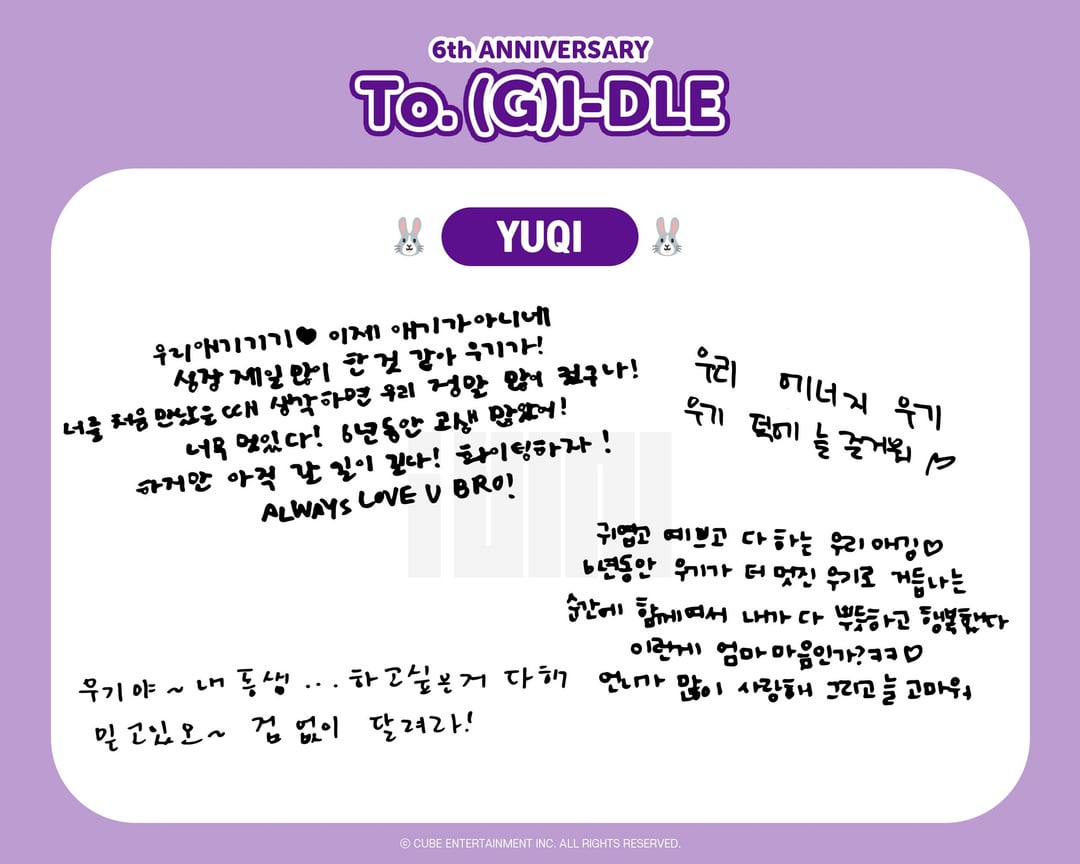 6th ANNIVERSARY
To. (G)I-DLE
YUQI
우리애기기기♥ 이제 애기가아니네
성장 제일 많이 한 것 같아 우기가!
너를 처음 만났을 때 생각하면 우리 정말 많이 컸구나!
너무 멋있다! 6년동안 고생 많았어!
하지만 아직 갈 길이 길다! 화이팅하자!
ALWAYS LOVE U BRO!
우리 에너지 우기
우기 덕에 늘 즐거워 ♡
귀엽고 예쁘고 다 하는 우리 애깅♡
6년동안 우기가 더 멋진 우기로 거듭나는
순간에 함께여서 내가 다 뿌듯하고 행복했다
이런게 엄마마음인가?ㅋㅋ♡
언니가 많이 사랑해 그리고 늘 고마워
우기야~ 내 동생... 하고싶은거 다해
믿고있오~ 겁 없이 달려라!
YUQI
ⓒ CUBE ENTERTAINMENT INC. ALL RIGHTS RESERVED.